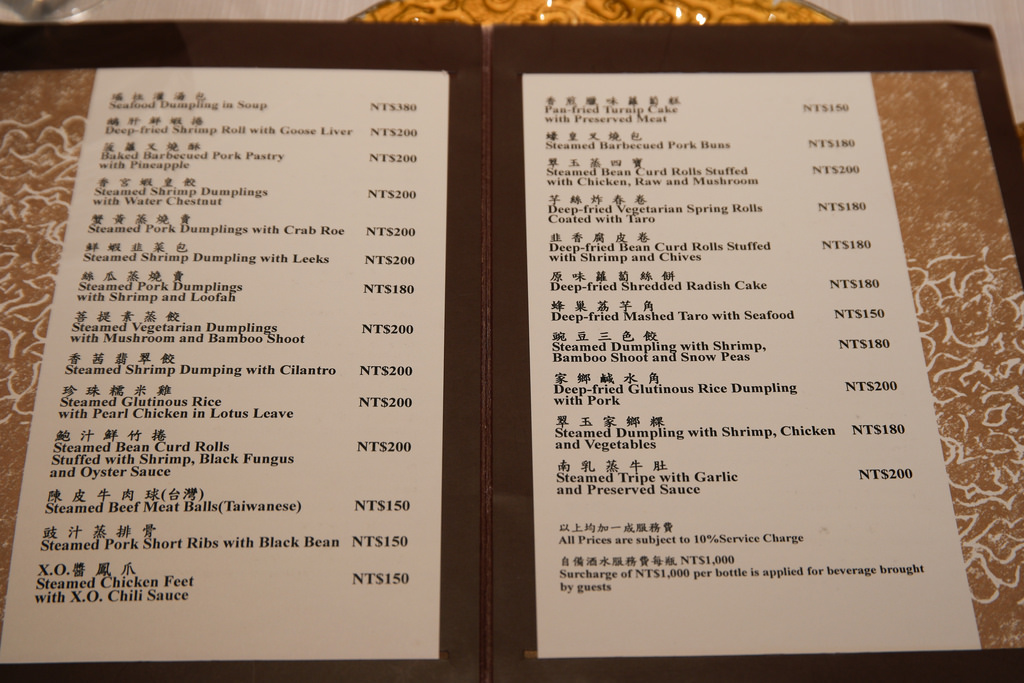 瑤柱灌湯包
Seafood Dumpling in Soup NT$380
鵝肝鮮蝦捲
Deep-fried Shrimp Roll with Goose Liver NT$200
菠蘿叉燒酥
Baked Barbecued Pork Pastry NT$200
with Pineapple
香宮蝦皇餃
Steamed Shrimp Dumplings NT$200
with Water Chestnut
蟹黃蒸燒賣
Steamed Pork Dumplings with Crab Roe NT$200
鮮蝦韭菜包
Steamed Shrimp Dumpling with Leeks NT$200
絲瓜蒸燒賣
Steamed Pork Dumplings NT$180
with Shrimp and Loofah
菩提素蒸餃
Steamed Vegetarian Dumplings NT$200
with Mushroom and Bamboo Shoot
香茜翡翠餃
Steamed Shrimp Dumping with Cilantro NT$200
珍珠糯米雞
Steamed Glutinous Rice NT$200
with Pearl Chicken in Lotus Leave
鮑汁鮮竹捲
Steamed Bean Curd Rolls NT$200
Stuffed with Shrimp, Black Fungus
and Oyster Sauce
陳皮牛肉球(台灣)
Steamed Beef Meat Balls(Taiwanese) NT$150
豉汁蒸排骨
Steamed Pork Short Ribs with Black Bean NT$150
X.O.醬鳳爪
Steamed Chicken Feet NT$150
with X.O. Chili Sauce
香煎臘味蘿蔔糕
Pan-fried Turnip Cake NT$150
with Preserved Meat
蠔皇叉燒包
Steamed Barbecued Pork Buns NT$180
翠玉蒸四寶
Steamed Bean Curd Rolls Stuffed NT$200
with Chicken, Raw and Mushroom
芋絲炸春卷
Deep-fried Vegetarian Spring Rolls NT$180
Coated with Taro
韭香腐皮卷
Deep-fried Bean Curd Rolls Stuffed NT$180
with Shrimp and Chives
原味蘿蔔絲餅
Deep-fried Shredded Radish Cake NT$180
蜂巢荔芋角
Deep-fried Mashed Taro with Seafood NT$150
豌豆三色餃
Steamed Dumpling with Shrimp, NT$180
Bamboo Shoot and Snow Peas
家鄉鹹水角
Deep-fried Glutinous Rice Dumpling NT$200
with Pork
翠玉家鄉粿
Steamed Dumpling with Shrimp, Chicken NT$180
and Vegetables
南乳蒸牛肚
Steamed Tripe with Garlic NT$200
and Preserved Sauce
以上均加一成服務費
All Prices are subject to 10%Service Charge
自備酒水服務費每瓶 NT$1,000
Surcharge of NT$1,000 per bottle is applied for beverage brought
by guests